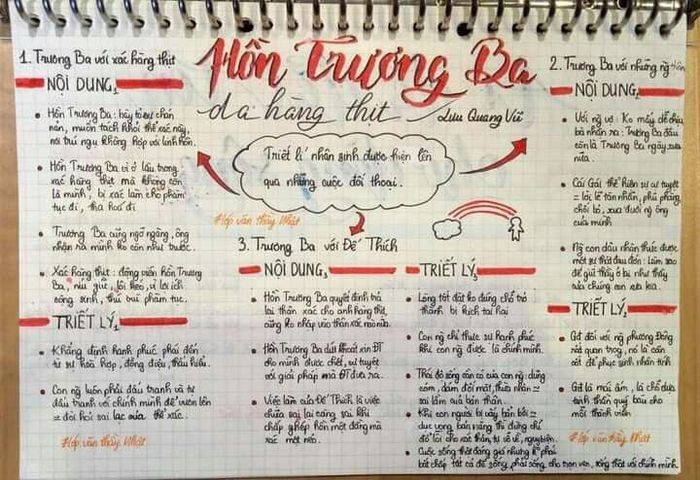 Hồn Trương Ba
da hàng thịt
Lưu Quang Vũ
Triết lí nhân sinh được hiện lên
qua những cuộc đối thoại.
#lớp văn thầy Nhật
1. Trương Ba với xác hàng thịt
NỘI DUNG1
Hồn Trương Ba: bày tỏ sự chán
nản, muốn tách khỏi thể xác này,
nơi trú ngụ không hợp với linh hồn.
Hồn Trương Ba vì ở lâu trong
xác hàng thịt mà không còn
là mình, bị xác làm cho phàm
tục đi, tha hoá đi
Trương Ba cũng ngỡ ngàng, ông
nhận ra mình ko còn như trước.
Xác hàng thịt: động viên hồn Trương
Ba, níu giữ, lôi kéo, vì lợi ích
sống sinh, thú vui phàm tục.
TRIẾT LÝ1
Khẳng định hạnh phúc phải đến
từ sự hoà hợp, đồng điệu, thấu hiểu.
Con ng luôn phải đấu tranh và tự
đấu tranh với chính mình để vươn lên
= đòi hỏi sai lạc của thể xác.
#lớp văn thầy Nhật
2. Trương Ba với những ng thân
NỘI DUNG2
Với ng vợ: Ko mấy dễ chịu
bà nhận ra: Trương Ba đâu
còn là Trương Ba ngày xưa
nữa.
Cái Gái thể hiện sự cự tuyệt
= lời lẽ tàn nhẫn, phũ phàng,
chối bỏ, xua đuổi ng ông
của mình
Ng con dâu nhận thức được
một sự thật đau đớn: làm sao
để giữ thầy ở lại như thầy
của chúng con xưa kia.
TRIẾT LÝ2
Gđ đối với ng phương Đông
rất quan trọng, nó là cái
cốt để phục sinh nhân tính
Gđ là mái ấm, là chỗ dựa
tinh thần quý báu cho
mỗi thành viên
#lớp văn thầy Nhật
3. Trương Ba với Đế Thích
NỘI DUNG3
Hồn Trương Ba quyết định trả
lại thân xác cho anh hàng thịt,
cũng ko nhập vào thân xác nào nữa.
Hồn Trương Ba dứt khoát xin ĐT
cho mình được chết, cự tuyệt
với giải pháp mà ĐT đưa ra.
Việc làm của Đế Thích là việc
chữa sai lại càng sai khi
chấp ghép hồn một đằng mà
xác một nẻo.
TRIẾT LÝ3
Lòng tốt đặt ko đúng chỗ trở
thành bi kịch tai hại
Con ng chỉ thực sự hạnh phúc
khi con ng được là chính mình.
Thái độ sống cần có của con ng: dũng
cảm, dám đối mặt, thừa nhận =
sai lầm của bản thân.
Khi con người bị vây bủa bởi =
dục vọng bản năng thì đừng chỉ
đổ lỗi cho xác thân, tự vỗ về, ngụy biện.
Cuộc sống thật đáng giá nhưng ko phải
bất chấp tất cả để sống, phải sống cho trọn vẹn, sống thật với chính mình